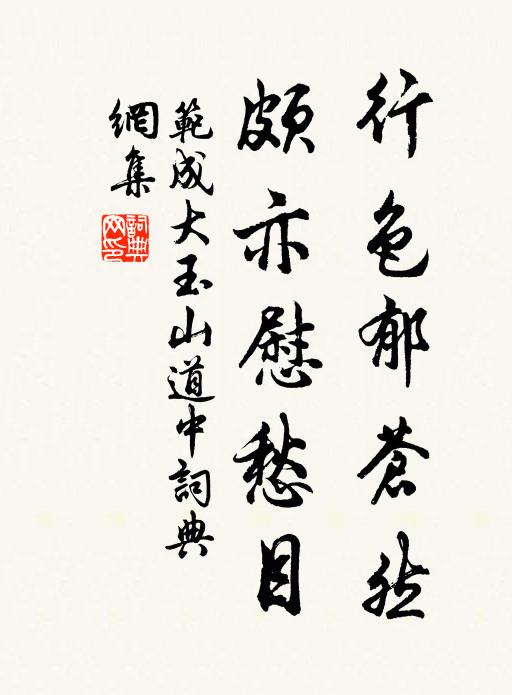 行色郁蒼然
頗亦慰愁目
範成大玉山道中詞典
網集
詞典
网印